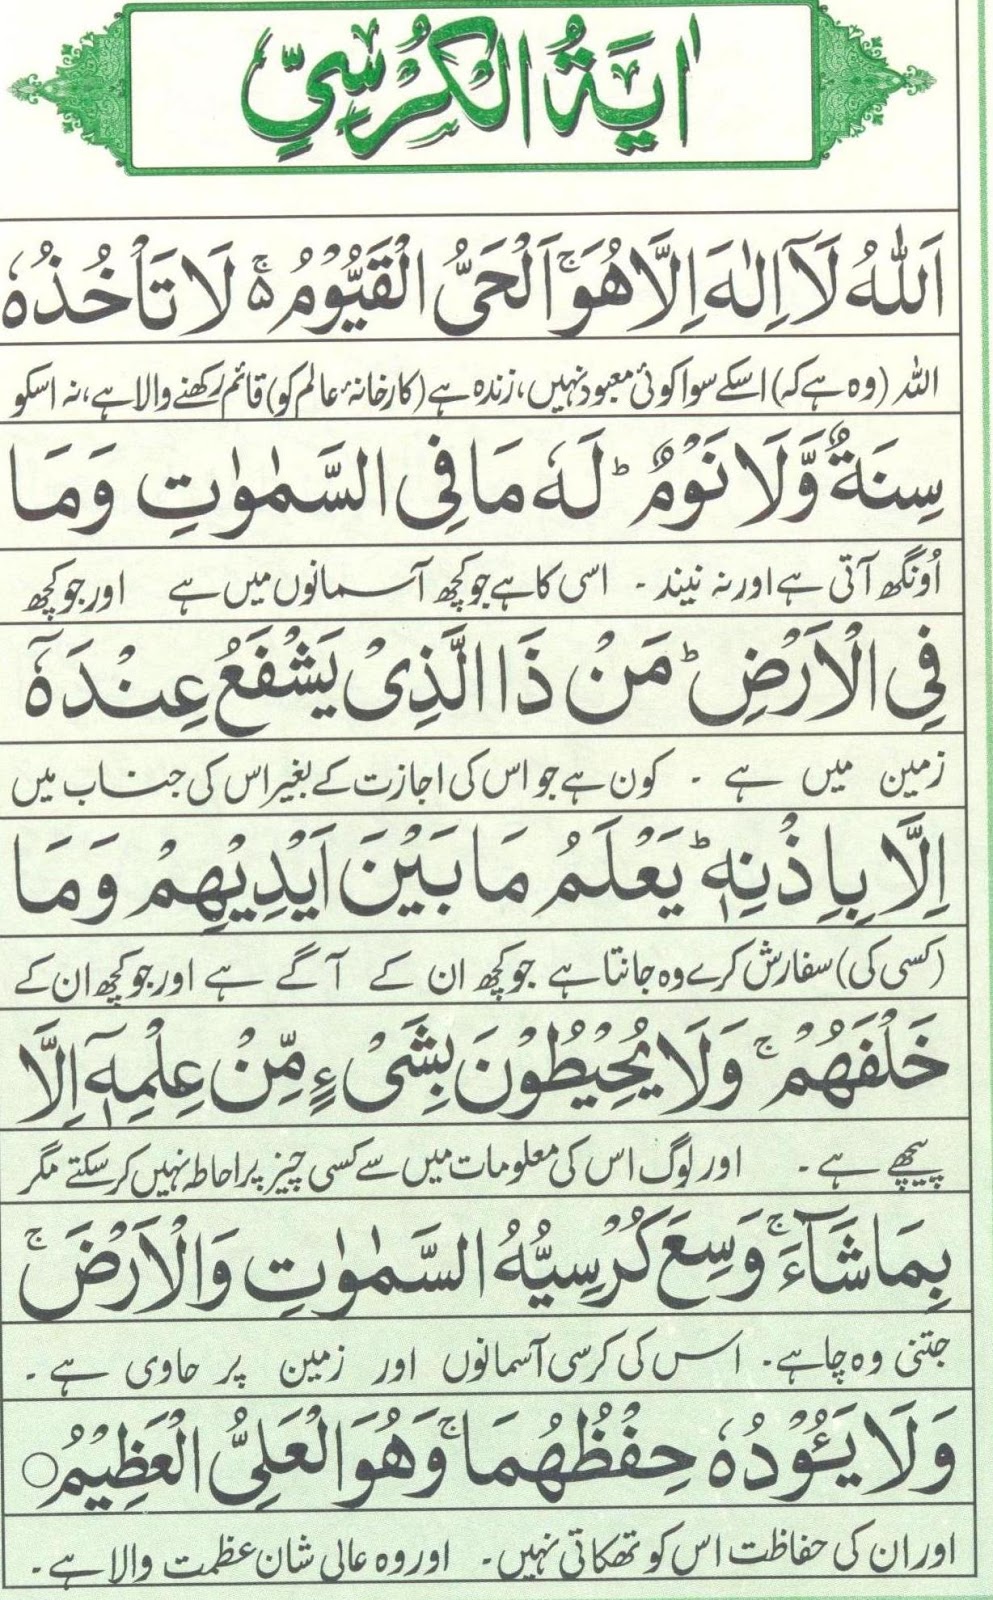 اٰیَةُ الْکُرْسِیِّ
اَللّٰهُ لَاۤ اِلٰهَ اِلَّا هُوَ ۚ اَلْحَیُّ الْقَیُّوْمُ ۚ۬ لَا تَاْخُذُهٗ
اللہ (وہ ہے کہ) اسکے سوا کوئی معبود نہیں، زندہ ہے (کارخانۂ عالم کو) قائم رکھنے والا ہے، نہ اسکو
سِنَةٌ وَّلَا نَوْمٌ ؕ لَهٗ مَا فِی السَّمٰوٰتِ وَمَا
اُونگھ آتی ہے اور نہ نیند ۔ اسی کا ہے جو کچھ آسمانوں میں ہے اور جو کچھ
فِی الْاَرْضِ ؕ مَنْ ذَا الَّذِیْ یَشْفَعُ عِنْدَهٗۤ
زمین میں ہے ۔ کون ہے جو اس کی اجازت کے بغیر اس کی جناب میں
اِلَّا بِاِذْنِهٖ ؕ یَعْلَمُ مَا بَیْنَ اَیْدِیْهِمْ وَمَا
(کسی کی) سفارش کرے وہ جانتا ہے جو کچھ ان کے آگے ہے اور جو کچھ ان کے
خَلْفَهُمْ ۚ وَلَا یُحِیْطُوْنَ بِشَیْءٍ مِّنْ عِلْمِهٖۤ اِلَّا
پیچھے ہے ۔ اور لوگ اس کی معلومات میں سے کسی چیز پر احاطہ نہیں کرسکتے مگر
بِمَا شَآءَ ۚ وَسِعَ کُرْسِیُّهُ السَّمٰوٰتِ وَالْاَرْضَ ۚ
جتنی وہ چاہے ۔ اس کی کرسی آسمانوں اور زمین پر حاوی ہے ۔
وَلَا یَـُٔوْدُهٗ حِفْظُهُمَا ۚ وَهُوَ الْعَلِیُّ الْعَظِیْمُ ○
اور ان کی حفاظت اس کو تھکاتی نہیں ۔ اور وہ عالی شان عظمت والا ہے ۔